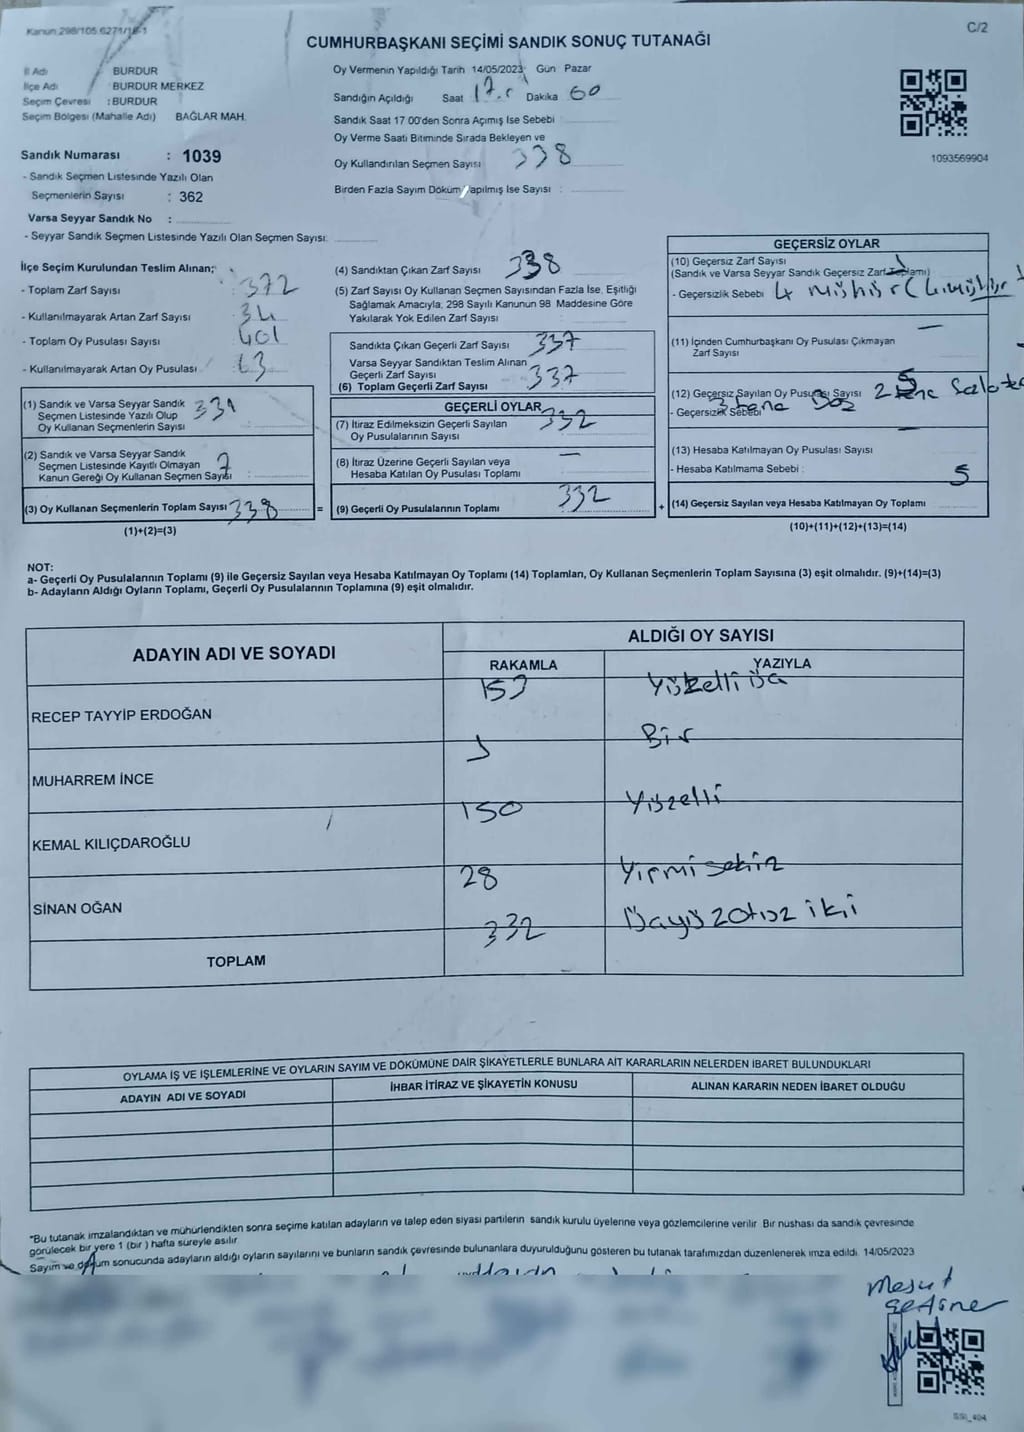 Kanun 298/105 6271/18-1
C/2
CUMHURBAŞKANI SEÇİMİ SANDIK SONUÇ TUTANAĞI
İl Adı BURDUR
İlçe Adı BURDUR MERKEZ
Seçim Çevresi : BURDUR
Seçim Bölgesi (Mahalle Adı) BAĞLAR MAH.
Sandık Numarası : 1039
- Sandık Seçmen Listesinde Yazılı Olan
Seçmenlerin Sayısı : 362
Varsa Seyyar Sandık No :
- Seyyar Sandık Seçmen Listesinde Yazılı Olan Seçmen Sayısı:
Oy Vermenin Yapıldığı Tarih 14/05/2023 Gün Pazar
Sandığın Açıldığı Saat 17 Dakika
Sandık Saat 17 00'den Sonra Açımış Ise Sebebi
Oy Verme Saati Bitiminde Sırada Bekleyen ve
Oy Kullandırılan Seçmen Sayısı 338
Birden Fazla Sayım Döküm Yapılmış Ise Sayısı :
1093569904
İlçe Seçim Kurulundan Teslim Alınan;
- Toplam Zarf Sayısı 372
- Kullanılmayarak Artan Zarf Sayısı 34
- Toplam Oy Pusulası Sayısı 401
- Kullanılmayarak Artan Oy Pusulası 63
(1) Sandık ve Varsa Seyyar Sandık
Seçmen Listesinde Yazılı Olup
Oy Kullanan Seçmenlerin Sayısı 331
(2) Sandık ve Varsa Seyyar Sandık
Seçmen Listesinde Kayıtlı Olmayan
Kanun Gereği Oy Kullanan Seçmen Sayısı 7
(3) Oy Kullanan Seçmenlerin Toplam Sayısı 338 =
(1)+(2)=(3)
(4) Sandıktan Çıkan Zarf Sayısı 338
(5) Zarf Sayısı Oy Kullanan Seçmen Sayısından Fazla Ise, Eşitliği
Sağlamak Amacıyla, 298 Sayılı Kanunun 98 Maddesine Göre
Yakılarak Yok Edilen Zarf Sayısı
Sandıkta Çıkan Geçerli Zarf Sayısı 337
Varsa Seyyar Sandıktan Teslim Alınan
Geçerli Zarf Sayısı
(6) Toplam Geçerli Zarf Sayısı 337
GEÇERLİ OYLAR
(7) İtiraz Edilmeksizin Geçerli Sayılan
Oy Pusulalarının Sayısı 332
(8) İtiraz Üzerine Geçerli Sayılan veya
Hesaba Katılan Oy Pusulası Toplamı —
(9) Geçerli Oy Pusulalarının Toplamı 332 +
GEÇERSİZ OYLAR
(10) Geçersiz Zarf Sayısı
(Sandık ve Varsa Seyyar Sandık Geçersiz Zarf Toplamı) 1
- Geçersizlik Sebebi 4 mühür
(11) İçinden Cumhurbaşkanı Oy Pusulası Çıkmayan
Zarf Sayısı —
(12) Geçersiz Sayılan Oy Pusulası Sayısı 5
- Geçersizlik Sebebi 3 tane Boş 2 tane
(13) Hesaba Katılmayan Oy Pusulası Sayısı —
- Hesaba Katılmama Sebebi :
(14) Geçersiz Sayılan veya Hesaba Katılmayan Oy Toplamı 5
(10)+(11)+(12)+(13)=(14)
NOT:
a- Geçerli Oy Pusulalarının Toplamı (9) ile Geçersiz Sayılan veya Hesaba Katılmayan Oy Toplamı (14) Toplamları, Oy Kullanan Seçmenlerin Toplam Sayısına (3) eşit olmalıdır. (9)+(14)=(3)
b- Adayların Aldığı Oyların Toplamı, Geçerli Oy Pusulalarının Toplamına (9) eşit olmalıdır.
ADAYIN ADI VE SOYADI ALDIĞI OY SAYISI
RAKAMLA YAZIYLA
RECEP TAYYİP ERDOĞAN 153 Yüzelliüç
MUHARREM İNCE 1 Bir
KEMAL KILIÇDAROĞLU 150 Yüzelli
SİNAN OĞAN 28 Yirmisekiz
TOPLAM 332 Üçyüzotuz iki
OYLAMA İŞ VE İŞLEMLERİNE VE OYLARIN SAYIM VE DÖKÜMÜNE DAİR ŞİKAYETLERLE BUNLARA AİT KARARLARIN NELERDEN İBARET BULUNDUKLARI
ADAYIN ADI VE SOYADI İHBAR İTİRAZ VE ŞİKAYETİN KONUSU ALINAN KARARIN NEDEN İBARET OLDUĞU
*Bu tutanak imzalandıktan ve mühürlendikten sonra seçime katılan adayların ve talep eden siyasi partilerin sandık kurulu üyelerine veya gözlemcilerine verilir Bir nushası da sandık çevresinde
görülecek bir yere 1 (bir) hafta süreyle asılır
Sayım ve döküm sonucunda adayların aldığı oyların sayılarını ve bunların sandık çevresinde bulunanlara duyurulduğunu gösteren bu tutanak tarafımızdan düzenlenerek imza edildi. 14/05/2023
Mesut